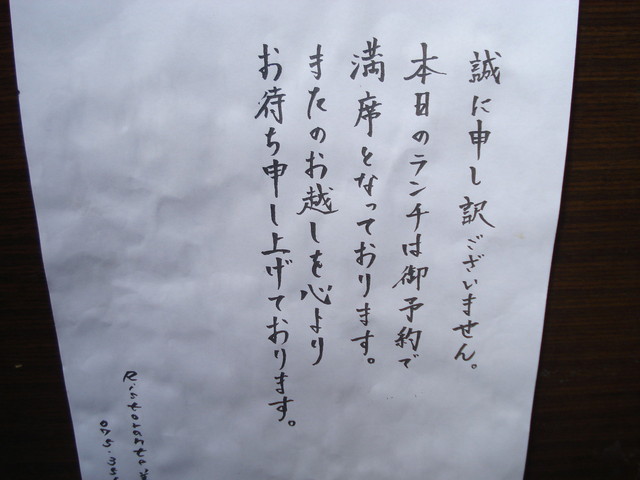 誠に申し訳ございません。
本日のランチは御予約で
満席となっております。
またのお越しを心より
お待ち申し上げております。
Ristorante
075.35